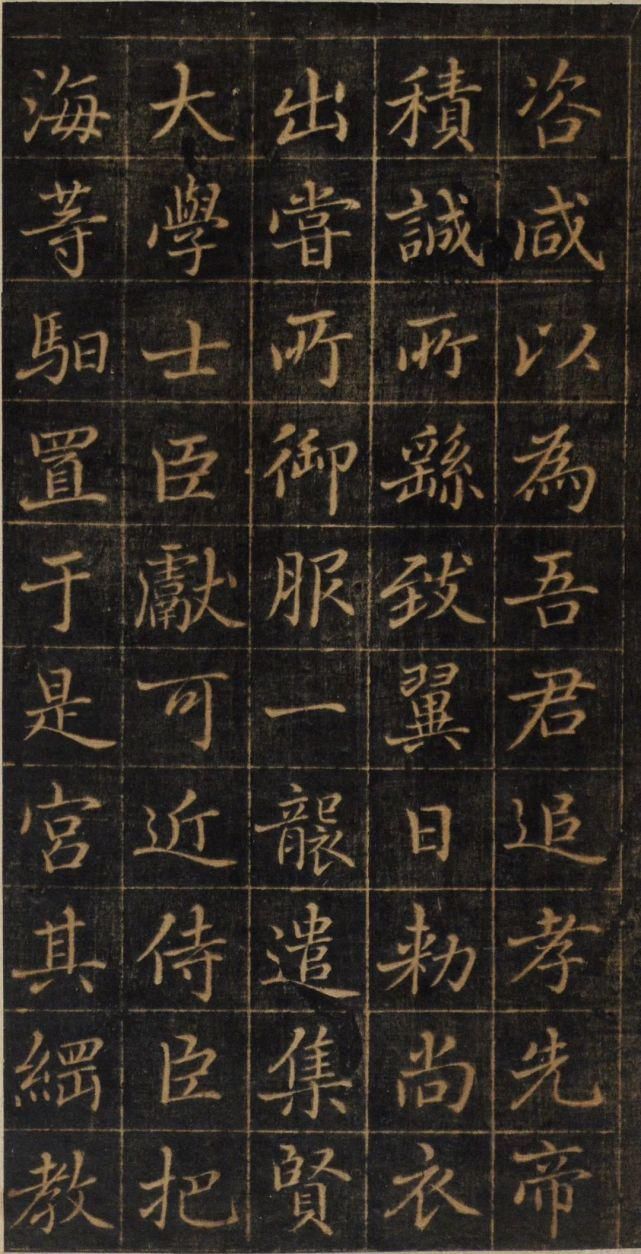 咨咸以為吾君追孝先帝
積誠所繇致翼日勅尚衣
出嘗所御服一襲遣集賢
大學士臣獻可近侍臣把
海等馹置于是宮其綱教